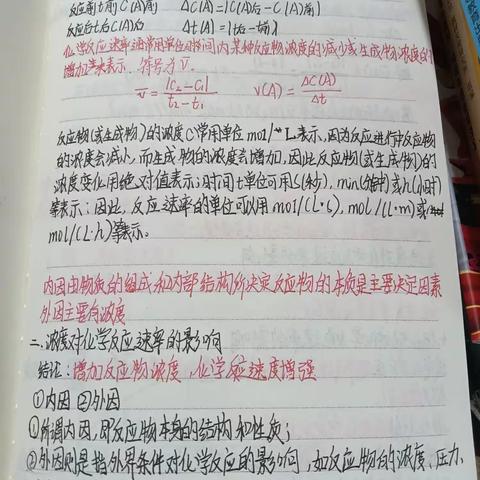 反应前t前 C(A)前 ΔC(A)=|C(A)后-C(A)前|
反应后t后 C(A)后 Δt(A)=|t后-t前|
化学反应速率通常用单位时间内某种反应物浓度的减少或生成物浓度的
增加来表示. 符号为v.
v=|c₂-c₁|/t₂-t₁ v(A)=ΔC(A)/Δt
反应物(或生成物)的浓度C常用单位 mol/L表示,因为反应进行中反应物
的浓度会减小,而生成物的浓度会增加,因此反应物(或生成物)的
浓度变化用绝对值表示;时间t单位可用S(秒), min(分钟)或h(小时)
等表示;因此,反应速率的单位可以用 mol/(L·s), mol/(L·m)或
mol/(L·h)等表示。
内因由物质的组成和内部结构所决定反应物的本质是主要决定因素
外因主要有浓度
二、浓度对化学反应速率的影响
结论:增加反应物浓度,化学反应速度增强
①内因 ②外因
①所谓内因,即反应物本身的结构和性质;
②外因则是指外界条件对化学反应的影响,如反应物的浓度、压力、